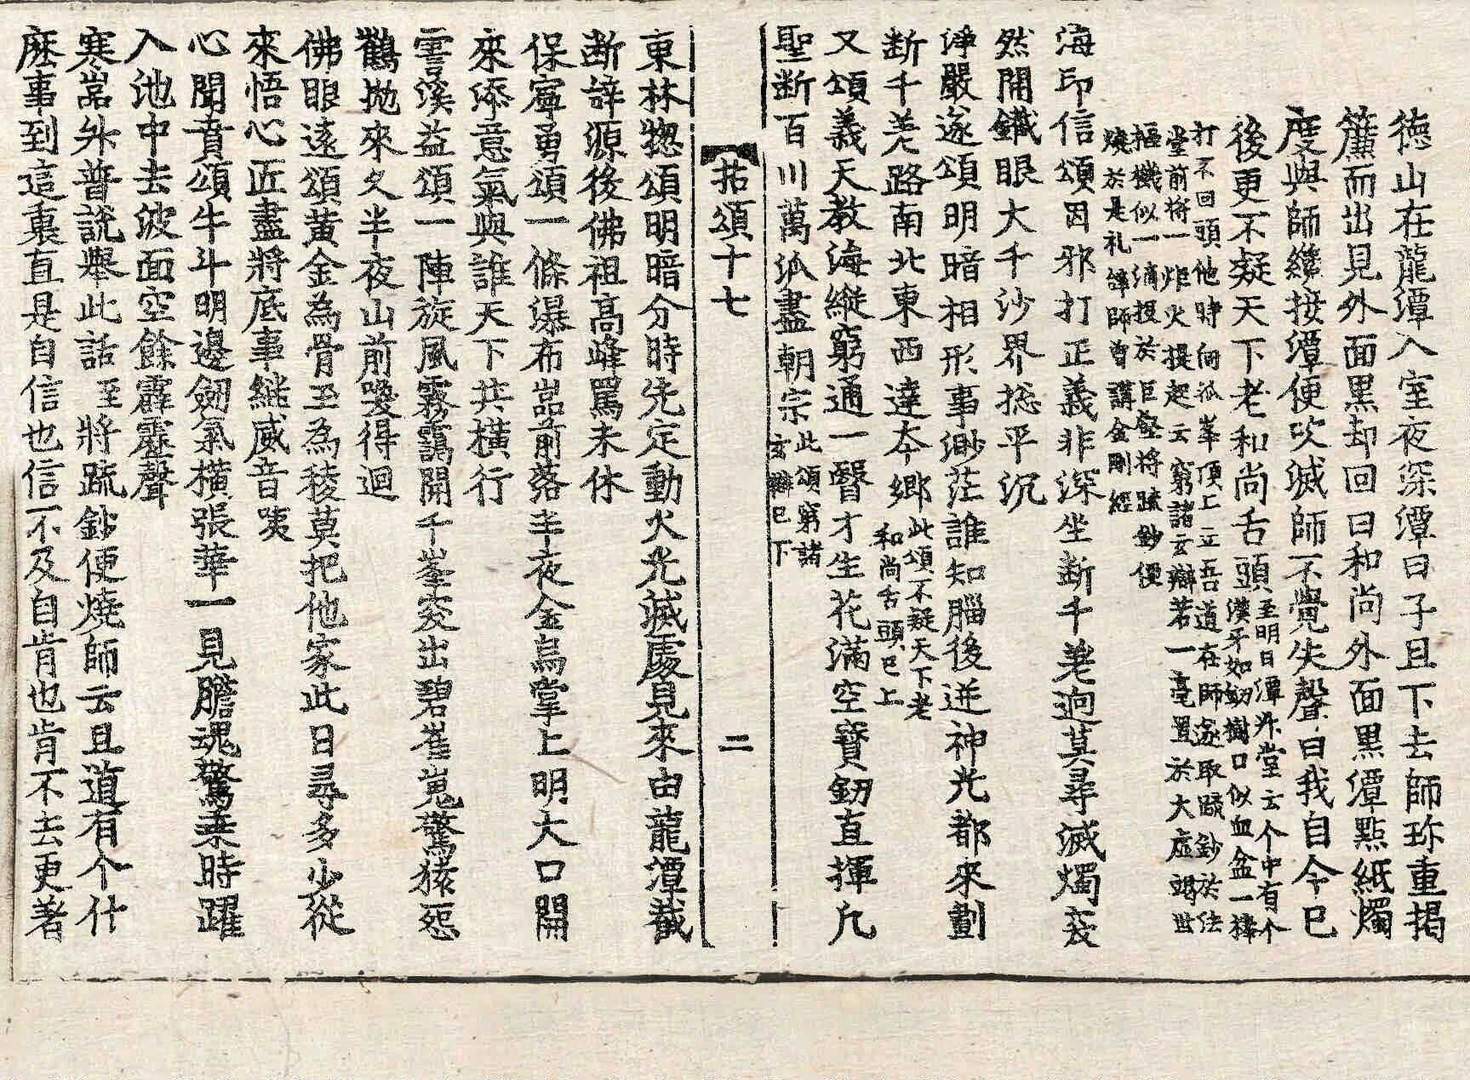 德山在龍潭入室夜深潭曰子且下去師珎重揭
簾而出見外面黑却回曰和尚外面黑潭㸃紙燭
度與師纔接潭便吹滅師不覺失聲曰我自今已
後更不疑天下老和尚舌頭至明日潭陞堂云个中有个
漢牙如劒樹口似血盆一棒
打不回頭他時向孤峯頂上立吾道在師遂取䟽鈔於法
堂前將一炬火提起云窮諸玄辯若一毫置於大虛竭世
樞機似一滴投於巨壑將䟽鈔便
燒於是礼辝師曾講金剛經
海印信頌因邪打正義非深坐断千差逈莫尋滅燭豁
然開鐵眼大千沙界揔平沉
淨嚴遂頌明暗相形事渺茫誰知腦後迸神光都來劃
断千差路南北東西達本郷此頌不疑天下老
和尚舌頭已上
又頌義天教海縱窮通一瞖才生花滿空寶劒直揮凡
聖断百川萬派盡朝宗此頌窮諸
玄辯已下
拈頌十七 二
東林揔頌明暗分時先定動火光滅處見來由龍潭截
断辝源後佛祖高峰罵未休
保寧勇頌一條瀑布嵓前落半夜金烏掌上明大口開
來添意氣與誰天下共橫行
霅溪益頌一陣旋風霧靄開千峯突出碧崔嵬驚猿怨
鶴抛來久半夜山前喚得迴
佛眼遠頌黃金為骨玉為稜莫把他家此日尋多少從
來悟心匠盡將底事継威音咦
心聞賁頌牛斗明邊劒氣橫張華一見膽魂驚乗時躍
入池中去波面空餘霹靂聲
寒嵓外普説舉此話至將䟽鈔便燒師云且道有个什
麽事到這裏直是自信也信不及自肯也肯不去更著